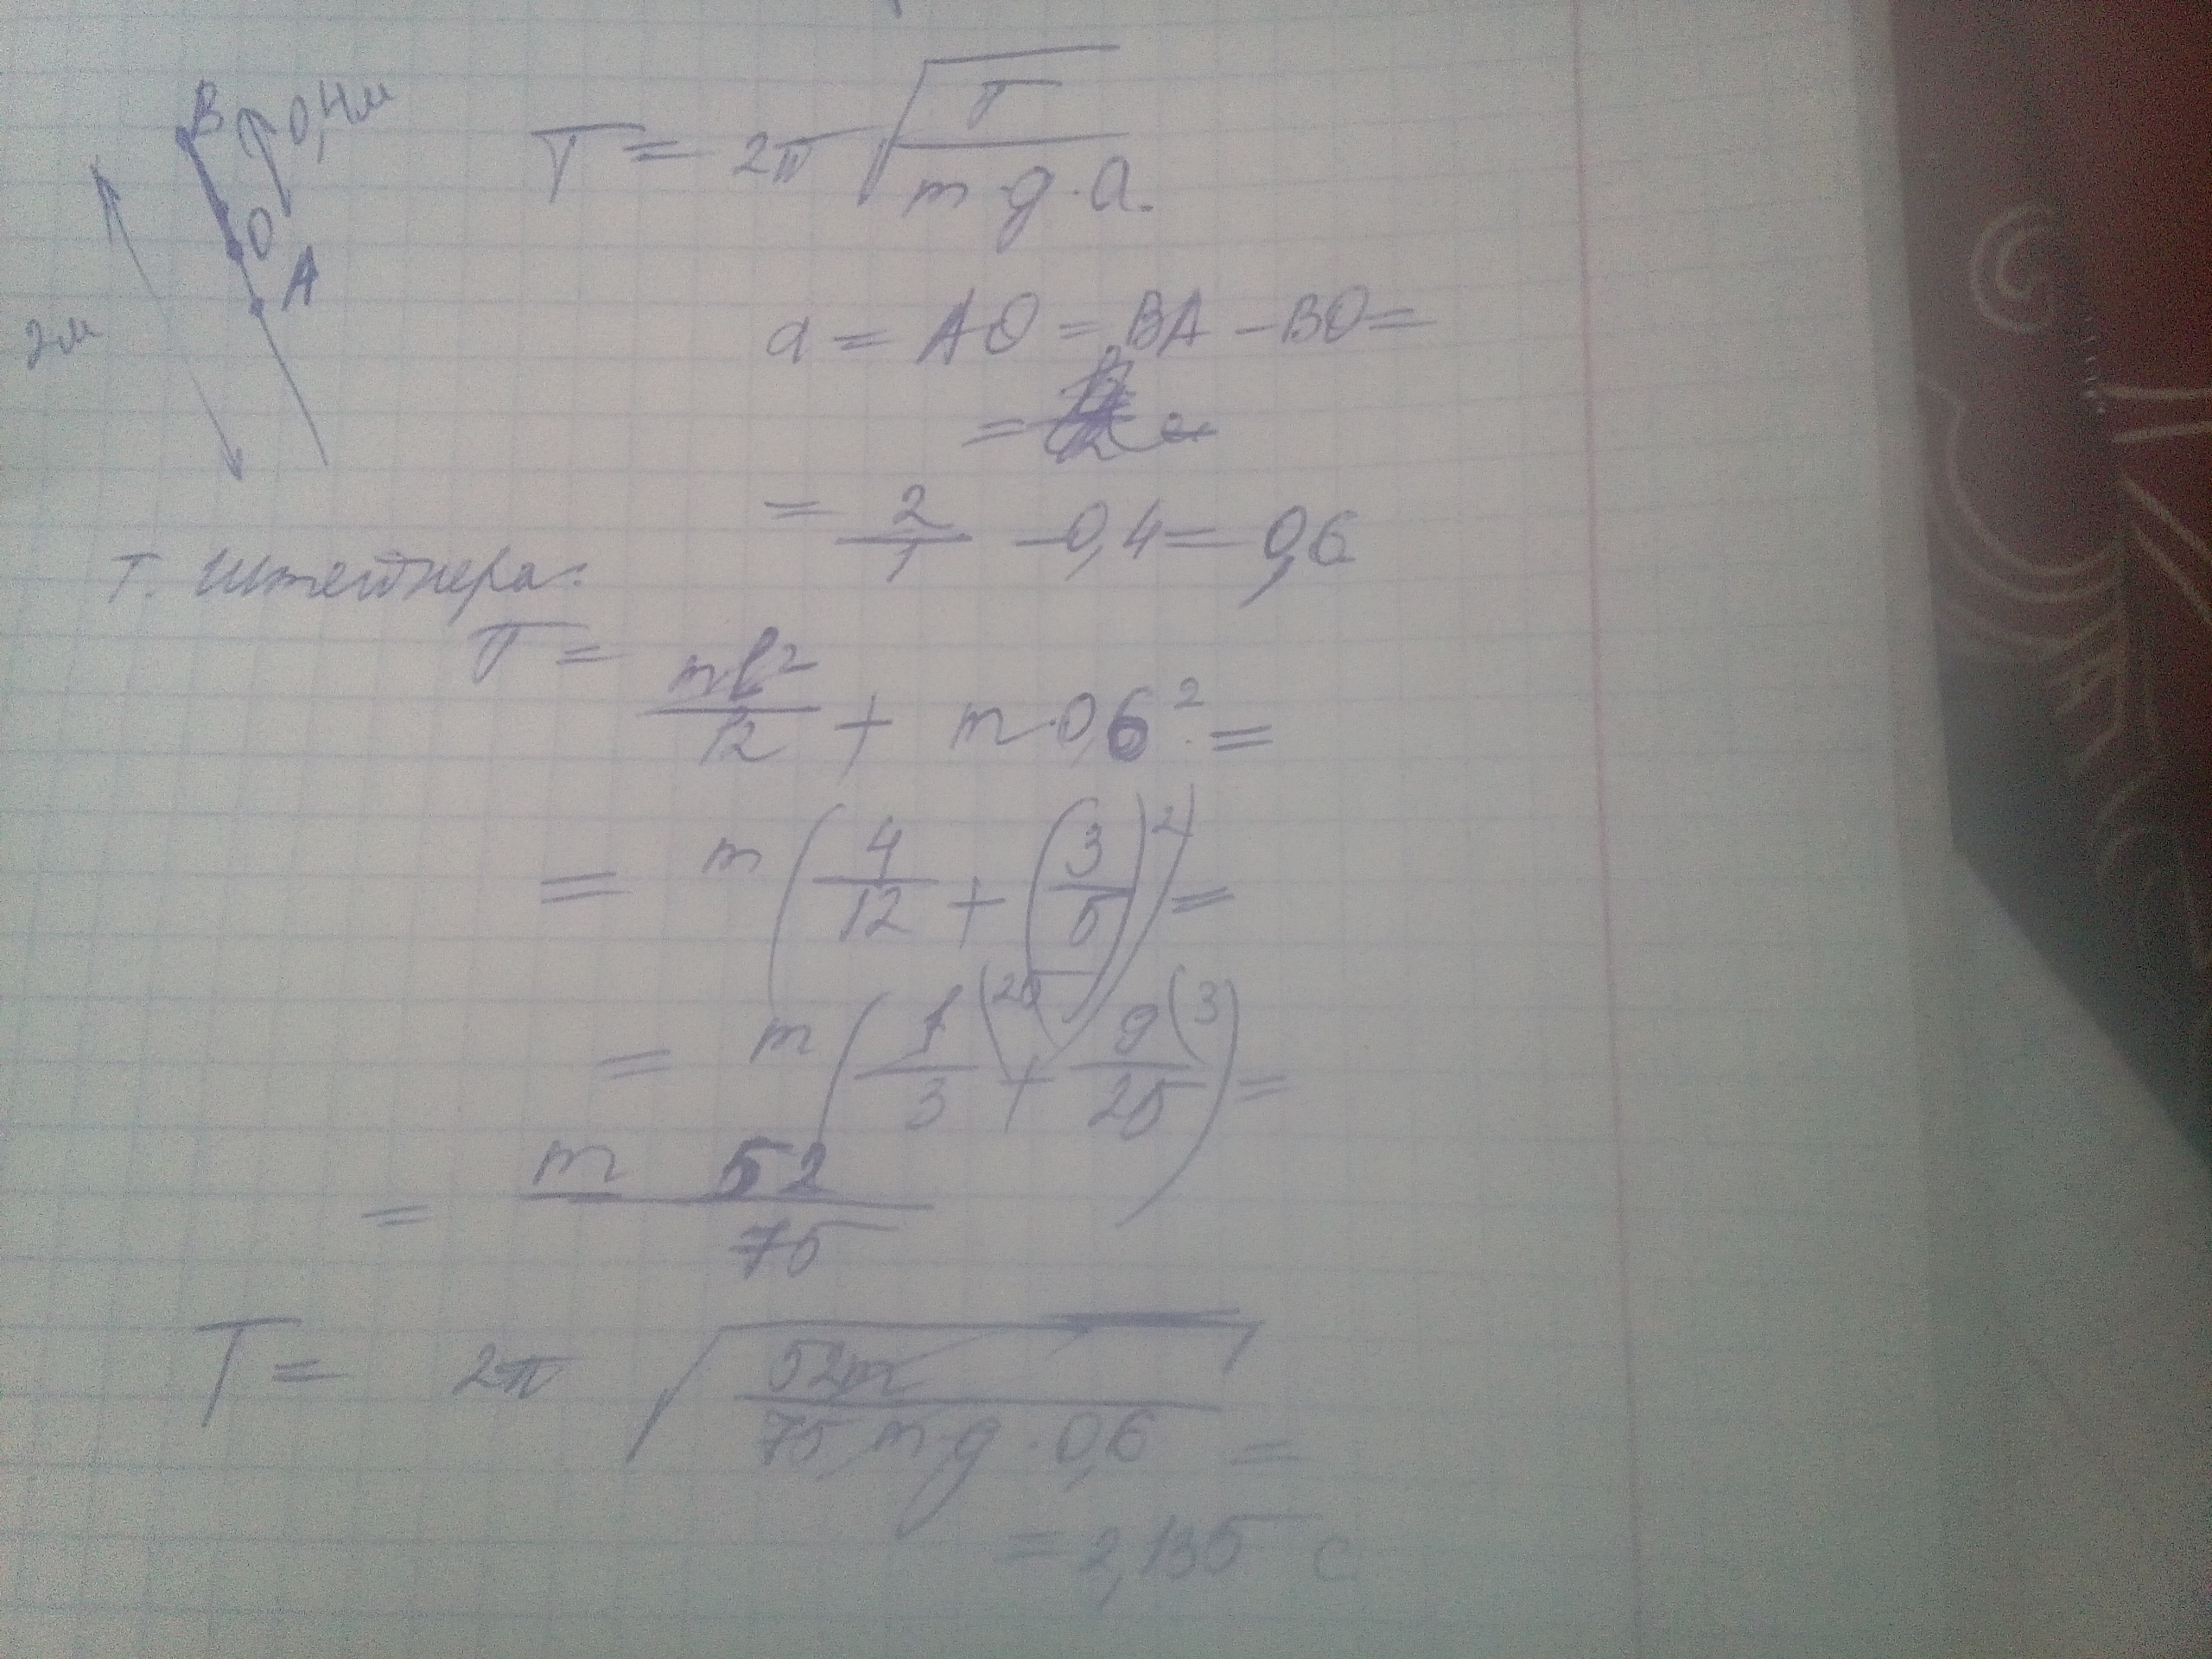 B 0,4м
O
A
2м
T = 2π √(J / m·g·a.
a = AO = BA - BO =
=
= 2/1 - 0,4 = 0,6
Т. Штейнера:
J = ml²/12 + m·0,6² =
= m(4/12 + (3/5)²) =
= m(1/3 (25 + 9/25 (3)) =
= m 52/75
T = 2π √(52m / 75 m·g·0,6) =
= 2,135 с